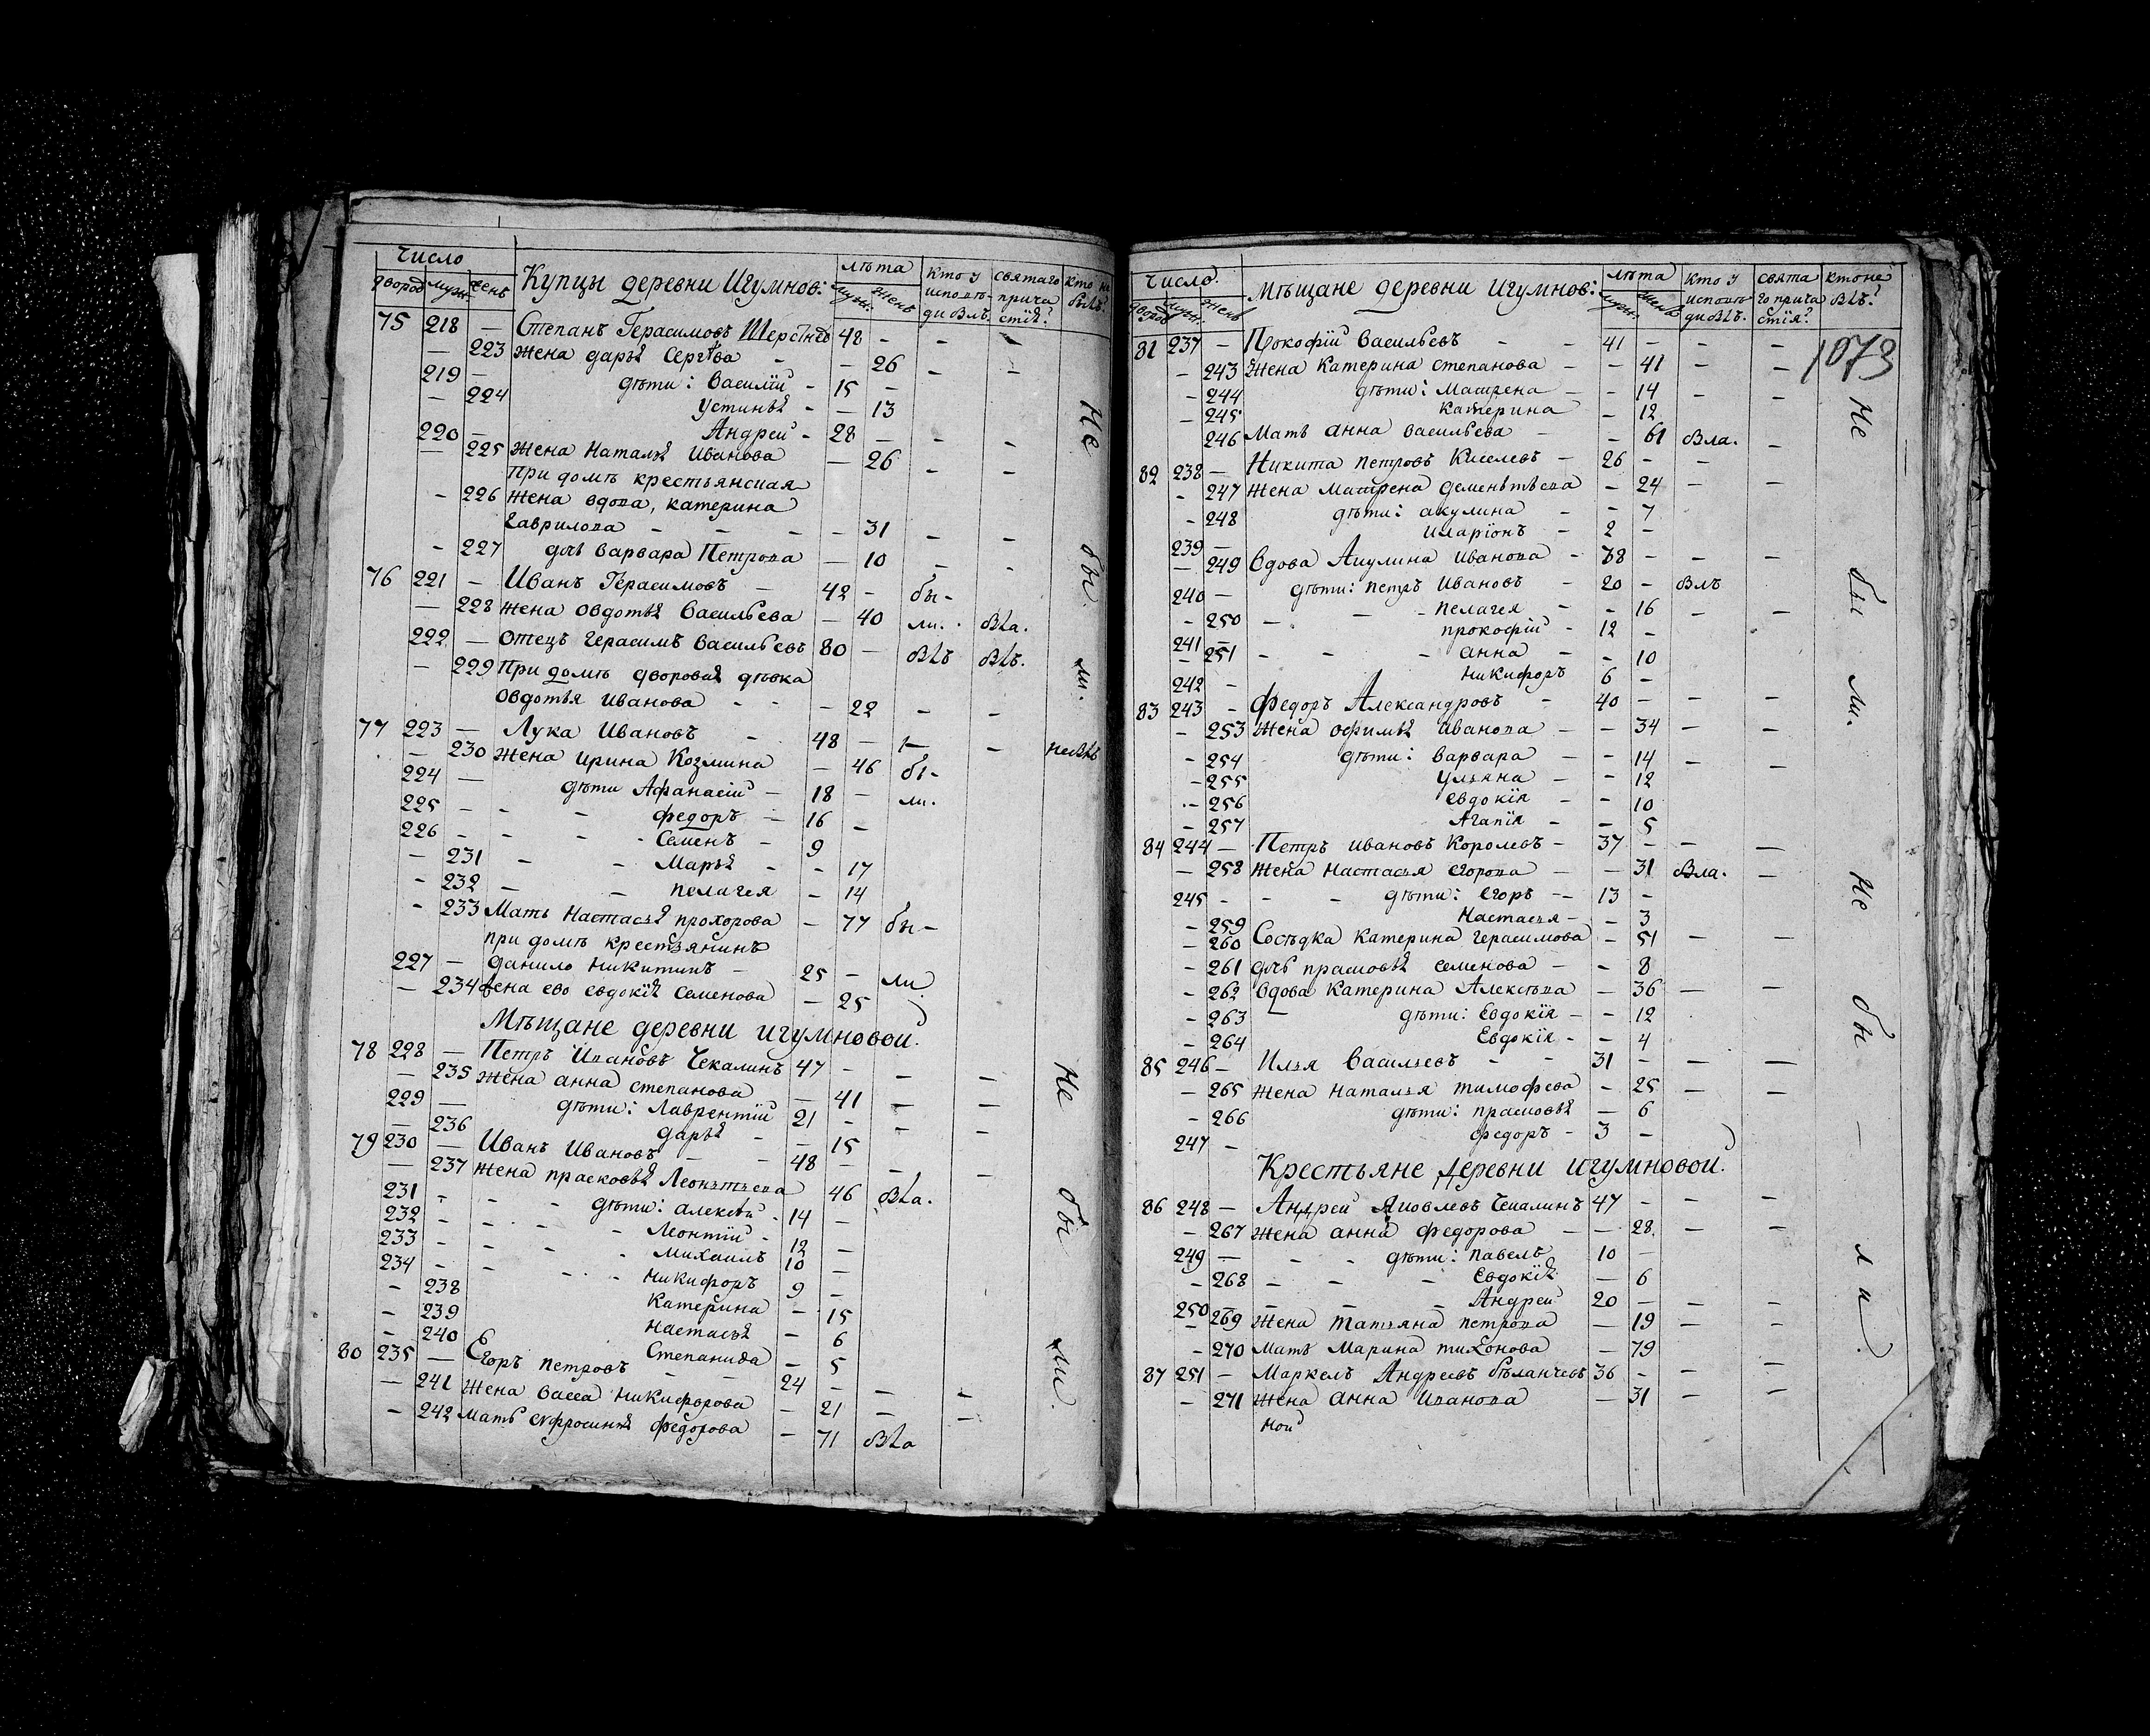 Число Купцы деревни Игумнов: лѣта кто у святаго кто не
дворов мужс: женъ мужс. женъ исповѣ- прича былъ?
ди былъ. стїя?
75 218 — Степанъ Герасимовъ 48 - - -
— 223 жена дарья Сергѣва - — 26 - -
219 — дѣти: Василïй - 15 -
— 224 Устинья - — 13
220 — Андрей - 28 — - -
— 225 жена Наталья Иванова — 26 - -
при домѣ крестьянская
- 226 жена вдова, катерина
гаврилова - - - — 31 - -
- 227 дчь варвара Петрова — 10 - -
76 221 — Иванъ Герасимовъ — 42 - бы-
— 228 жена овдотья Васильева — 40 ли. была.
222 — отецъ герасимъ Васильевъ 80 — былъ былъ.
— 229 При домѣ дворовая дѣвка
овдотья Иванова - - — 22 - -
77 223 — Лука Ивановъ - 48 — - - небылъ
— 230 жена ирина Козмина — 46 бы-
224 — дѣти Афанасiй — 18 — ли.
225 - - - федоръ — 16 -
226 - - - Семенъ - 9
- 231 - - Марья - - 17
- 232 - - пелагея - 14
- 233 Мать Настасья прохорова - 77 бы-
при домѣ крестьянинъ
227 — данило никитинъ - 25 — ли
— 234 жена ево евдокїя Семенова — 25
Мѣщане деревни игумновой.
78 228 — Петръ Ивановъ Чекалинъ 47 - - -
— 235 жена анна степанова — 41 — —
229 — дѣти: Лаврентïй 21 - - -
— 236 дарья - — 15
79 230 — Иванъ Ивановъ - - 48 — - -
— 237 жена прасковья Леонтьева 46 была.
231 - - - дѣти: алексѣй - 14 —
232 - - - Леонтïй - 12
233 - - - Михаилъ 10 —
234 - - - Никифоръ 9 -
- 238 Катерина - 15
- 239 настасья - 6
- 240 Степанида - 5
80 235 — Егоръ петровъ - - 24 - - -
— 241 жена васса никифорова — 21 — —
- 242 мать ефросинья федорова — 71 была
Не бы ли.
Не бы ли.
Число. Мѣщане деревни игумнов: лѣта кто у свята кто не
дворов мужс. женъ мужс. женъ исповѣ го прича былъ?
ди былъ. стїя?
1073
81 237 - Прокофiй Васильевъ - - 41 - - -
- 243 жена Катерина степанова - - 41 - -
- 244 дѣти: Матрена - - 14 - -
- 245 катерина - 12
246 Мать анна васильева - - 61 была. -
82 238 — Никита петровъ Киселевъ - 26 - -
- 247 жена матрена дементьева - 24 - -
- 248 дѣти: акулина - - 7
239 — иларïонъ - 2 -
— 249 Вдова Акулина иванова - 38 - - -
240 — дѣти: петръ Ивановъ - 20 - былъ
- 250 — - - пелагея - - 16 - -
241 — прокофiй - 12 -
- 251 - - - анна - - 10
242 - никифоръ 6 -
83 243 - федоръ Александровъ - 40 - - -
- 253 жена офимья иванова - - 34 - -
- 254 дѣти: варвара — - 14 - -
- 255 ульяна - - 12
- 256 евдокїя - - 10
- 257 Агапїя - - 5
84 244 — Петръ ивановъ Королевъ - 37 - - —
— 258 жена настасья егорова — - 31 была. —
245 - - - дѣти: егоръ — 13 -
- 259 настасья - - 3
- 260 Сосѣдка катерина герасимова - 51 - -
- 261 дчь прасковья семенова — - 8
- 262 вдова Катерина Алексѣева — 36 — —
- 263 дѣти: Евдокїя - - 12
- 264 Евдокїя - - 4
85 246 - Илья Васильевъ - - 31 - — —
— 265 жена наталья тимофеева - 25 — —
- 266 дѣти: прасковья — 6
247 - федоръ - 3 -
Крестьяне деревни игумновой.
86 248 — Андрей Яковлевъ Чекалинъ 47 - - -
- 267 жена анна федорова — - 28. - -
249 — - - дѣти: павелъ 10 —
- 268 — - - Евдокїя — 6
250 — - - Андрей 20 — - -
— 269 жена татьяна петрова — 19 — -
- 270 мать Марина тихонова — 79
87 251 - Маркелъ Андреевъ 36 - - -
- 271 жена анна иванова — 31 - -
ной
Не бы ли.
Не бы - ли.